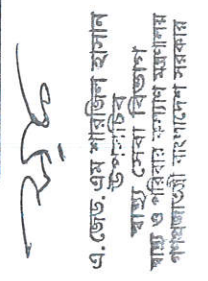 এ.জেড.এম শারজিল হাসান
উপসচিব
স্বাস্থ্য সেবা বিভাগ
স্বাস্থ্য ও পরিবার কল্যাণ মন্ত্রণালয়
গণপ্রজাতন্ত্রী বাংলাদেশ সরকার